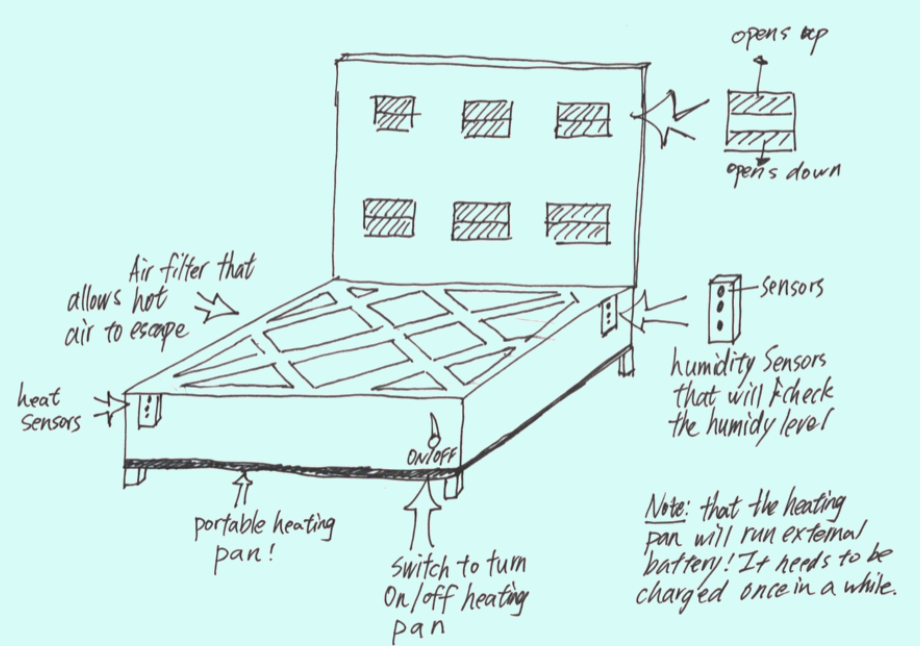 opens up
opens down
Air filter that
allows hot
air to escape
sensors
humidity Sensors
that will check
the humidy level
heat
sensors
ON/OFF
portable heating
pan!
Switch to turn
On/off heating
pan
Note: that the heating
pan will run external
battery! It needs to be
charged once in a while.